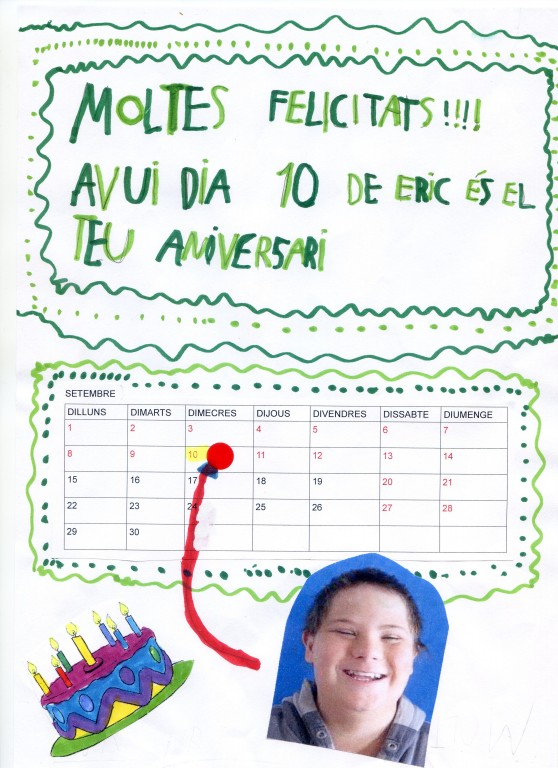 MOLTES FELICITATS!!!!
AVUI DIA 10 DE ERIC ÉS EL
TEU ANIVERSARI
SETEMBRE
DILLUNS DIMARTS DIMECRES DIJOUS DIVENDRES DISSABTE DIUMENGE
1 2 3 4 5 6 7
8 9 10 11 12 13 14
15 16 17 18 19 20 21
22 23 24 25 26 27 28
29 30